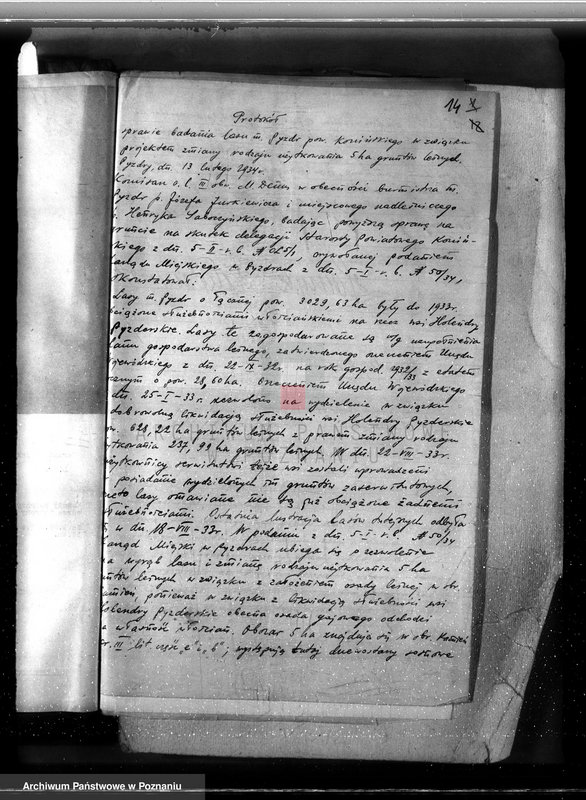 14
Protokół
sprawie badania lasu m. Pyzdr pow. Konińskiego w związku
projektem zmiany rodzaju użytkowania 5 ha gruntów leśnych.
Pyzdry, dn. 13 lutego 1934r.
Komisarz o. l. II obw. w obecności burmistrza m.
Pyzdr p. Józefa Jurkiewicza i miejscowego nadleśniczego
p. Henryka badając powyższą sprawę na
gruncie na skutek delegacji Starosty Powiatowego Koniń-
skiego z dn. 5-II-r.b. wywołanej podaniem
Zarządu Miejskiego w Pyzdrach z dn. 5-I-r.b. A 50/34,
skonstatował:
Lasy m. Pyzdr o łącznej pow. 3029,63 ha były do 1933r.
obciążone służebnościami włościańskiemi na rzecz wsi Holendry
Pyzderskie. Lasy te zagospodarowane są w/g uzupełnienia
planu gospodarstwa leśnego, zatwierdzonego orzeczeniem Urzędu
Wojewódzkiego z dn. 22-IX-32r. na rok gospod. 1932/33 z etatem
rocznym o pow. 28,60 ha. Orzeczeniem Urzędu Wojewódzkiego
dn. 25-I-33r. zezwolono na wydzielenie w związku
dobrowolną likwidacją służebności wsi Holendry Pyzderskie
628,22 ha gruntów leśnych z prawem zmiany rodzaju
użytkowania 237,99 ha gruntów leśnych. W dn. 22-VIII-33r.
użytkownicy serwitutów tejże wsi zostali wprowadzeni
posiadanie wydzielonych im gruntów
lasy omawiane nie są już obciążone żadnemi
służebnościami. Ostatnia lustracja lasów tutejszych odbyła
w dn. 18-VIII-33r. W podaniu z dn. 5-I-r.b. A 50/34
Zarząd Miejski w Pyzdrach ubiega się o zezwolenie
na wyrąb lasu i zmianę rodzaju użytkowania 5 ha
gruntów leśnych w związku z założeniem osady leśnej w obr.
Kamień, ponieważ w związku z likwidacją służebności wsi
Holendry Pyzderskie obecna osada gajowego odchodzi
na własność włościan. Obszar 5 ha znajduje się w obr. Kamień
III lit. część "a" i "b"; występują tutaj drzewostany sosnowe
Archiwum Państwowe w Poznaniu